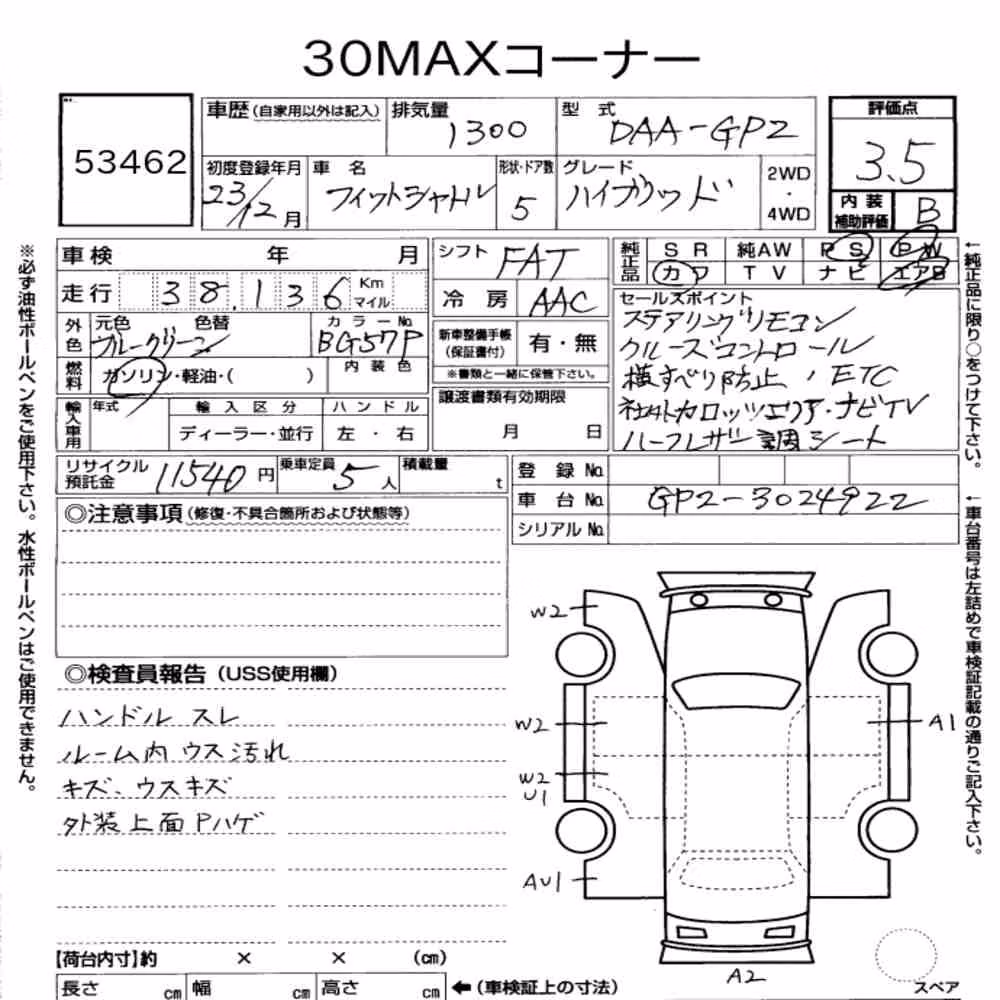 30MAXコーナー
53462
車歴 (自家用以外は記入) 排気量 1300 型式 DAA-GP2
初度登録年月 23/12月 車名 フィットシャトル 形状・ドア数 5 グレード ハイブリッド 2WD・4WD
評価点 3.5
内装補助評価 B
車検 年 月 シフト FAT
走行 38,136 Km マイル 冷房 AAC
外色 元色 ブルーグリーン 色替 カラーNo. BG57P
燃料 ガソリン・軽油・( ) 内装色
新車整備手帳(保証書付) 有・無
※書類と一緒に保管下さい。
輸入車用 年式 輸入区分 ハンドル
ディーラー・並行 左・右
譲渡書類有効期限
月 日
純正品 SR 純AW PS PW
カワ TV ナビ エアB
セールスポイント
ステアリングリモコン
クルーズコントロール
横すべり防止、ETC
社外カロッツェリア・ナビTV
ハーフレザー調シート
リサイクル預託金 11540円 乗車定員 5人 積載量 t
登録No.
車台No. GP2-3024922
シリアルNo.
◎注意事項(修復・不具合箇所および状態等)
◎検査員報告(USS使用欄)
ハンドル スレ
ルーム内 ウス汚れ
キズ、ウスキズ
外装上面Pハゲ
W2
W2
W2
U1
AU1
A1
A2
スペア
【荷台内寸】約 × × (cm)
長さ cm 幅 cm 高さ cm ←(車検証上の寸法)
※必ず油性ボールペンをご使用下さい。水性ボールペンはご使用できません。
←純正品に限り○をつけて下さい。
←車台番号は左詰めで車検証記載の通りご記入下さい。